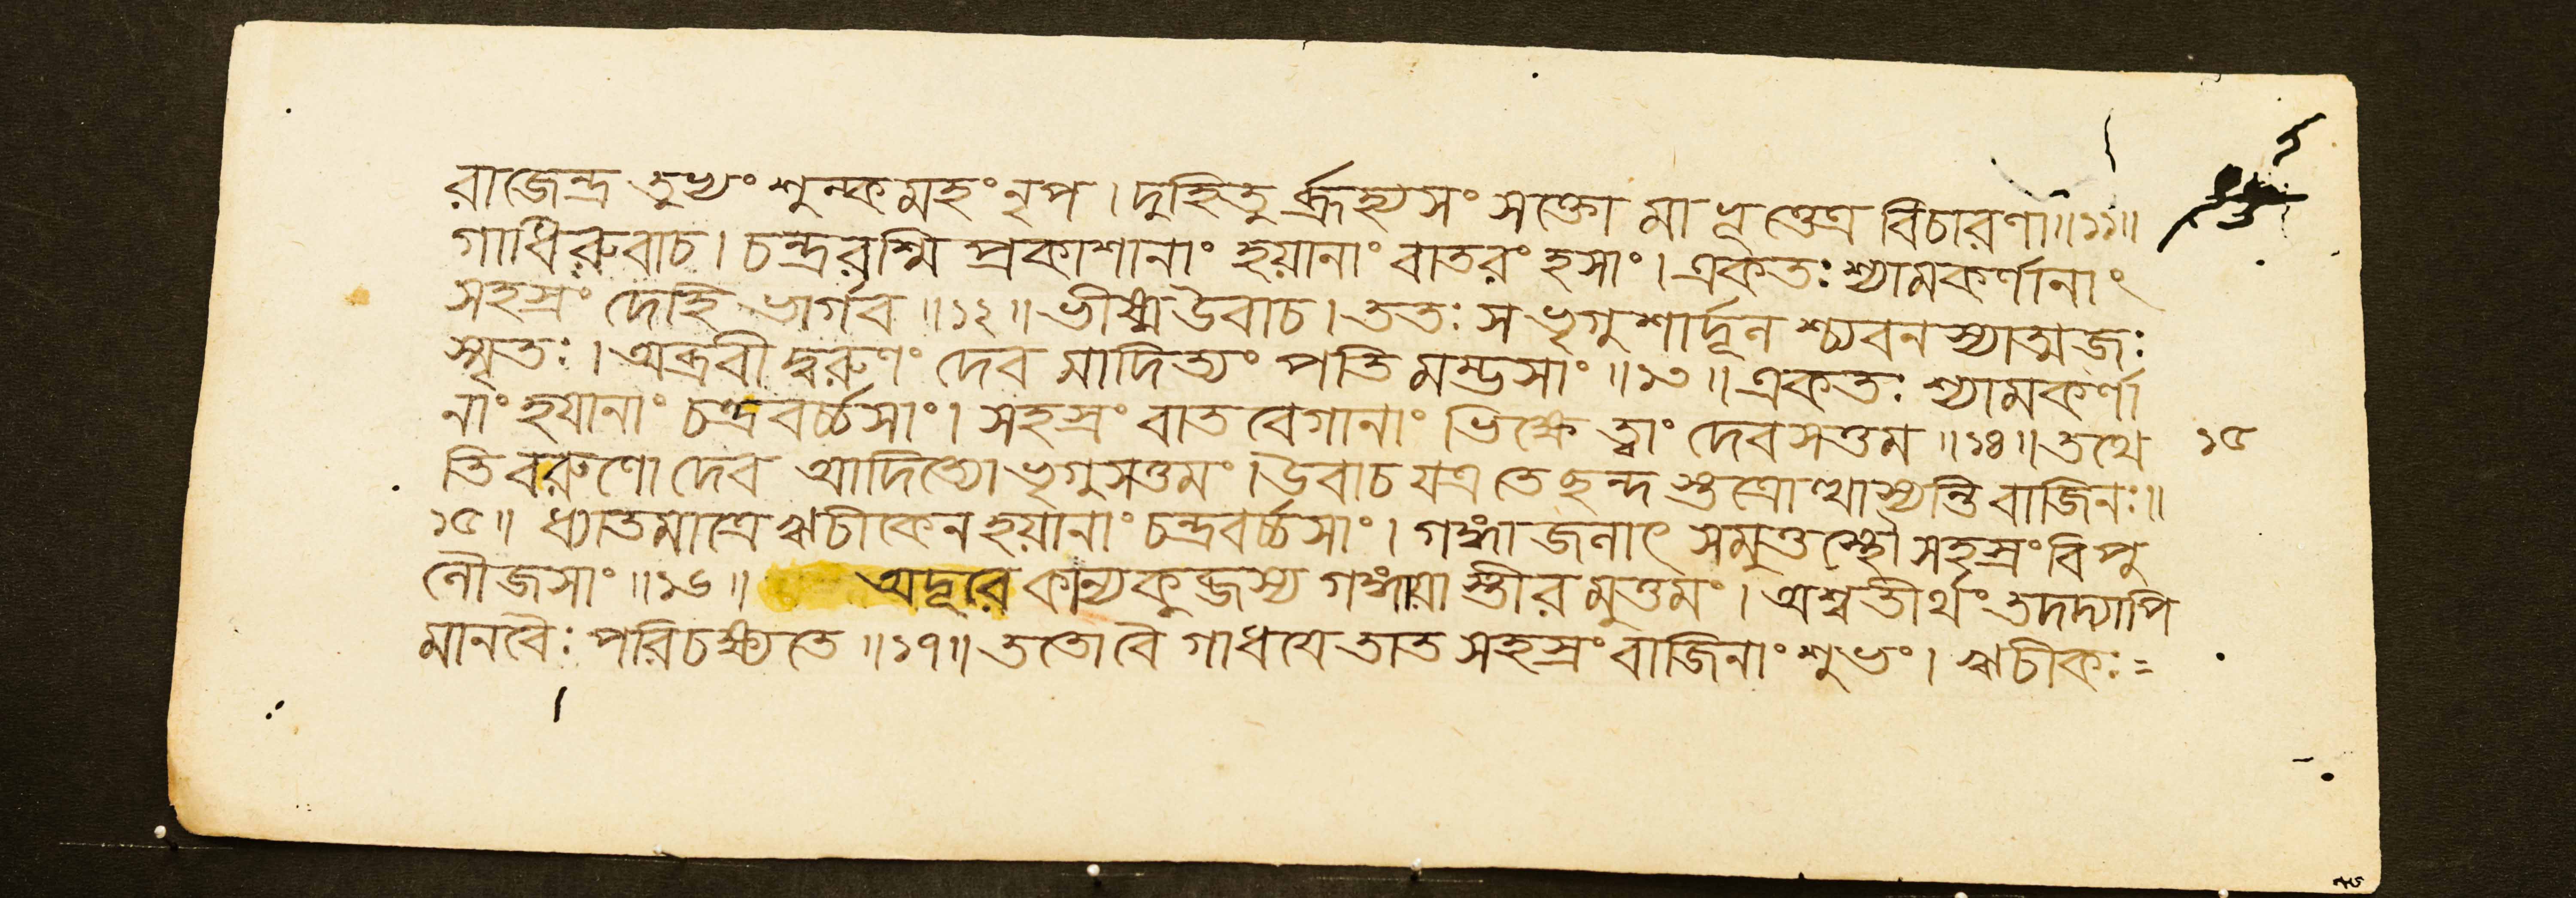 রাজেন্দ্র তুভ্যং শুল্কমহং নৃপ। দুহিতুর্ব্রূহ্যসং সক্তো মাভূত্তেত্র বিচারণা॥১১॥
গাধিরুবাচ। চন্দ্ররশ্মি প্রকাশানাং হয়ানাং বাতরং হসাং। একতঃ শ্যামকর্ণানাং
সহস্রং দেহি ভার্গব॥১২॥ ভীষ্মউবাচ। ততঃ স ভৃগুশার্দূল শ্চ্যবনস্যাত্মজঃ
স্মৃতঃ। অব্রবীদ্বরুণং দেব মাদিত্যং পতি মম্ভসাং॥১৩॥ একতঃ শ্যামকর্ণা
নাং হয়ানাং চন্দ্রবর্চ্চসাং। সহস্রং বাতবেগানাং ভিক্ষে ত্বাং দেবসত্তম॥১৪॥ তথে ১৫
তি বরুণো দেব আদিত্যো ভৃগুসত্তমং। উবাচ যত্র তে ছন্দ স্তত্রোত্থাস্যন্তি বাজিনঃ॥
১৫॥ ধ্যাতমাত্রে ঋচীকেন হয়ানাং চন্দ্রবর্চ্চসাং। গঙ্গাজলাৎ সমুত্তস্থৌ সহস্রং বিপু
লৌজসাং॥১৬॥ অদূরে কান্যকুব্জস্য গঙ্গায়া স্তীর মুত্তমং। অশ্বতীর্থং তদদ্যাপি
মানবৈঃ পরিচক্ষ্যতে॥১৭॥ ততো বৈ গাধয়ে তাত সহস্রং বাজিনাং শুভং। ঋচীকঃ=